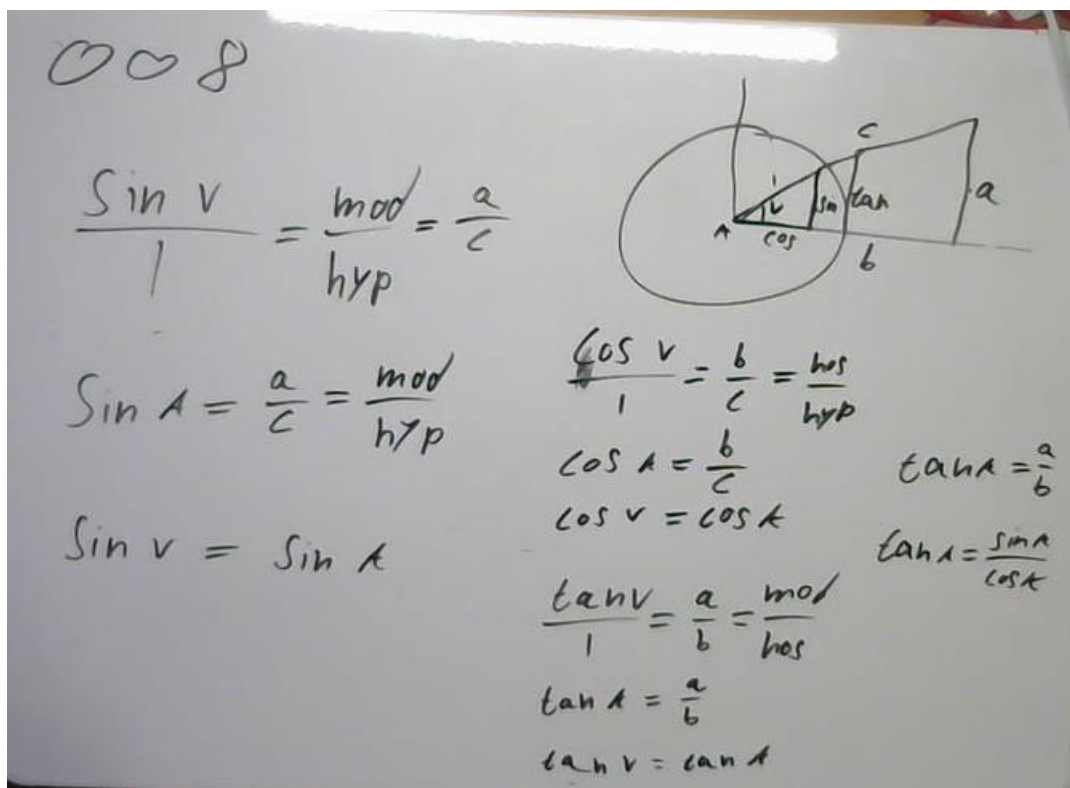 008
Sin v / 1 = mod / hyp = a / c
Sin A = a / c = mod / hyp
Sin v = Sin A
C
1
v
sin
tan
a
A
cos
b
Cos v / 1 = b / c = hos / hyp
cos A = b / c
cos v = cos A
tan v / 1 = a / b = mod / hos
tan A = a / b
tan v = tan A
tan A = a / b
tan A = sin A / cos A